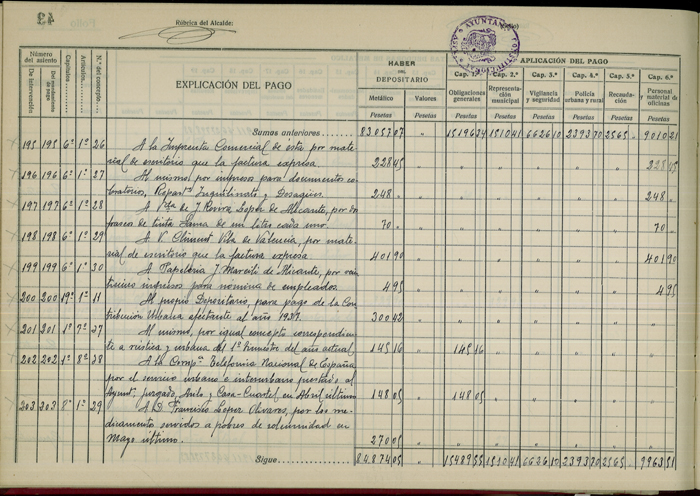 43
Rúbrica del Alcalde:
Número del asiento
De intervención
Del mandamiento de pago
Capítulos
Artículos
N.º del concepto
EXPLICACIÓN DEL PAGO
HABER DEL DEPOSITARIO
Metálico
Valores
Pesetas
APLICACIÓN DEL PAGO
Cap. 1.º Obligaciones generales
Cap. 2.º Representación municipal
Cap. 3.º Vigilancia y seguridad
Cap. 4.º Policía urbana y rural
Cap. 5.º Recaudación
Cap. 6.º Personal y material de oficinas
Pesetas Pesetas Pesetas Pesetas Pesetas Pesetas
Sumas anteriores 83057 07 " 15196 34 1510 41 6626 10 2393 70 2565 " 9010 21
195 195 6º 1º 26 A la Imprenta Comercial de esta por mate-
rial de escritorio que la factura expresa. 228 45 " " " " " " 228 45
196 196 6º 1º 27 Al mismo, por impresos para documentos co-
bratorios, Repartº Inquilinato y Desagües. 248 " " " " " " " 248 "
197 197 6º 1º 28 A Vda de J. Rovira López de Alicante, por dos
frascos de tinta Sama de un litro cada uno. 70 " " " " " " " 70 "
198 198 6º 1º 29 A V. Climent Vila de Valencia, por mate-
rial de escritorio que la factura expresa 401 90 " " " " " " 401 90
199 199 6º 1º 30 A Papelería J. Marcili de Alicante, por
impresos para nómina de empleados. 4 95 " " " " " " 4 95
200 200 19º 1º 11 Al propio Depositario, para pago de la Con-
tribución Urbana afectante al año 1937. 300 42 " " " " " " "
201 201 1º 7º 37 Al mismo, por igual concepto correspondien-
te a rústica y urbana del 1º trimestre del año actual 145 16 " 145 16 " " " " "
202 202 1º 8º 38 A la Compª Telefónica Nacional de España,
por el servicio urbano e interurbano prestado al
Ayuntº, juzgado, Aula y Casa-Cuartel en Abril último 148 05 " 148 05 " " " " "
203 203 8º 1º 29 A D. Francisco López Olivares, por los me-
dicamentos servidos a pobres de solemnidad en
Mayo último. 270 05 " " " " " " "
Sigue 84874 05 " 15489 55 1510 41 6626 10 2393 70 2565 " 9963 51